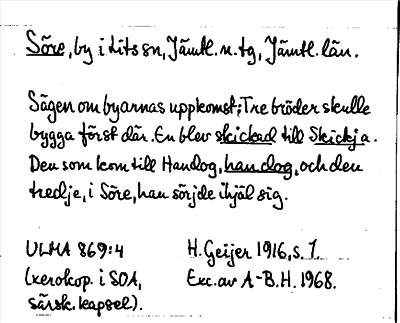 Söre, by i Lits sn, Jämtl. n. tg, Jämtl. län.
Sägen om byarnas uppkomst; Tre bröder skulle
bygga först där. En blev skickad till Skickja.
Den som kom till Handog, han dog, och den
tredje, i Söre, han sörjde ihjäl sig.
ULMA 869:4 H. Geijer 1916, s. 7.
(xerokop. i SOA, Exc. av A-B.H. 1968.
särsk. kapsel).